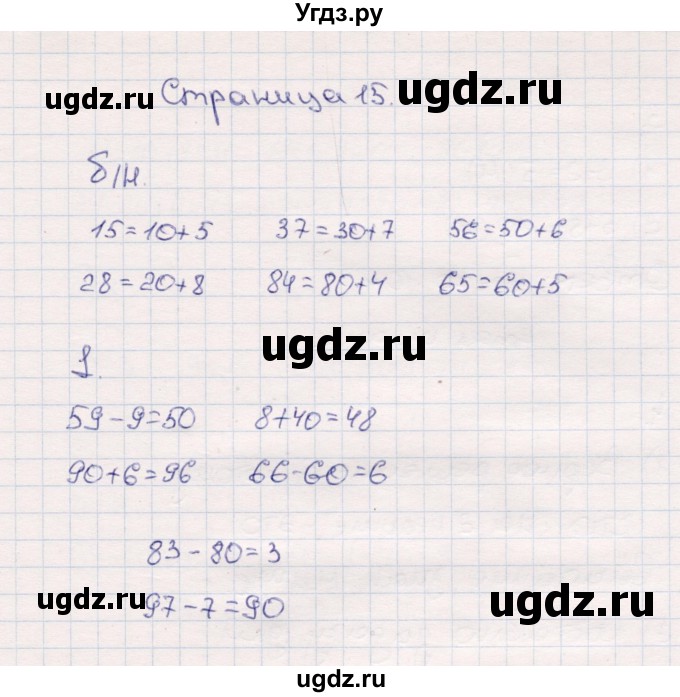 Угдз.ру
ugdz.ru Страница 15. ugdz.ru
б/н.
15=10+5 37=30+7 56=50+6
28=20+8 84=80+4 65=60+5
ugdz.ru
1.
59-9=50 8+40=48
90+6=96 66-60=6
83-80=3
ugdz.ru 97-7=90 ugdz.ru
ugdz.ru